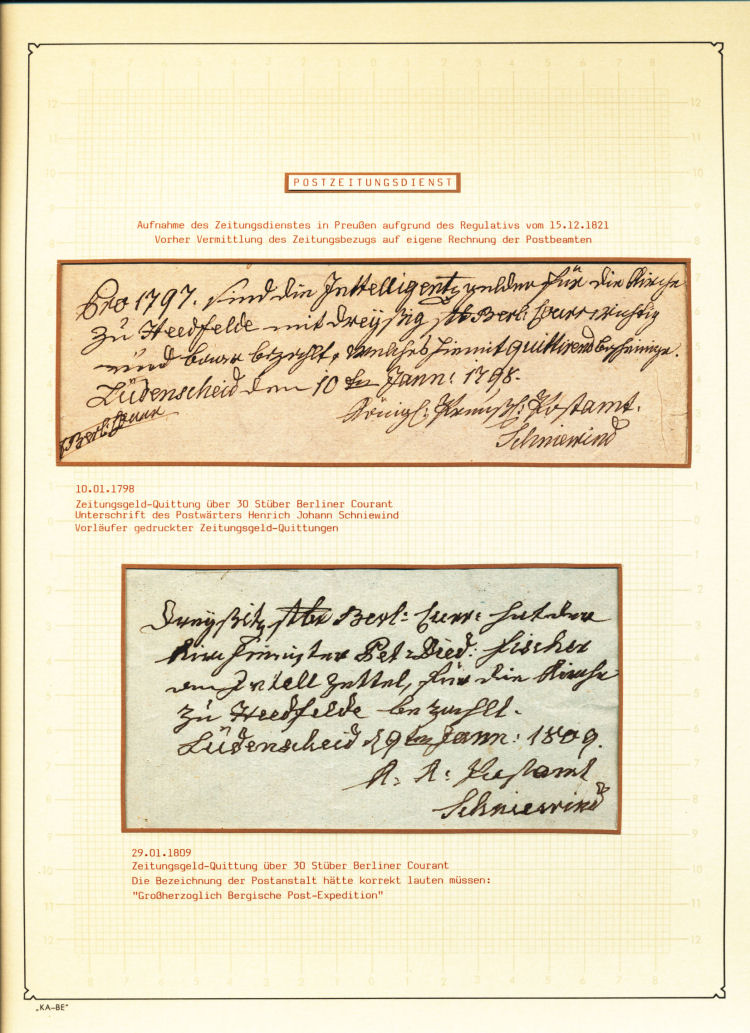 POSTZEITUNGSDIENST
Aufnahme des Zeitungsdienstes in Preußen aufgrund des Regulativs vom 15.12.1821
Vorher Vermittlung des Zeitungsbezugs auf eigene Rechnung der Postbeamten
Pro 1797. sind die Intelligentz gelder für die Kirche
zu Heedfelde mit dreyßig stb Berl: Cour: richtig
und baar bezahlt, hiemit quittirend bescheinige.
Lüdenscheid den 10 ten Jann: 1798.
Königl: Preußl: Postamt.
Schniewind
Berl: Cour
10.01.1798
Zeitungsgeld-Quittung über 30 Stüber Berliner Courant
Unterschrift des Postwärters Henrich Johann Schniewind
Vorläufer gedruckter Zeitungsgeld-Quittungen
Dreyßig stbr Berl: Curr: hat der
Pet: Died: Fischer
Intell Zettel, für die Kirche
zu Heedfelde bezahlt.
Lüdenscheid 29 ten Jann: 1809.
K. K: Postamt
Schniewind
29.01.1809
Zeitungsgeld-Quittung über 30 Stüber Berliner Courant
Die Bezeichnung der Postanstalt hätte korrekt lauten müssen:
"Großherzoglich Bergische Post-Expedition"
„KA-BE"